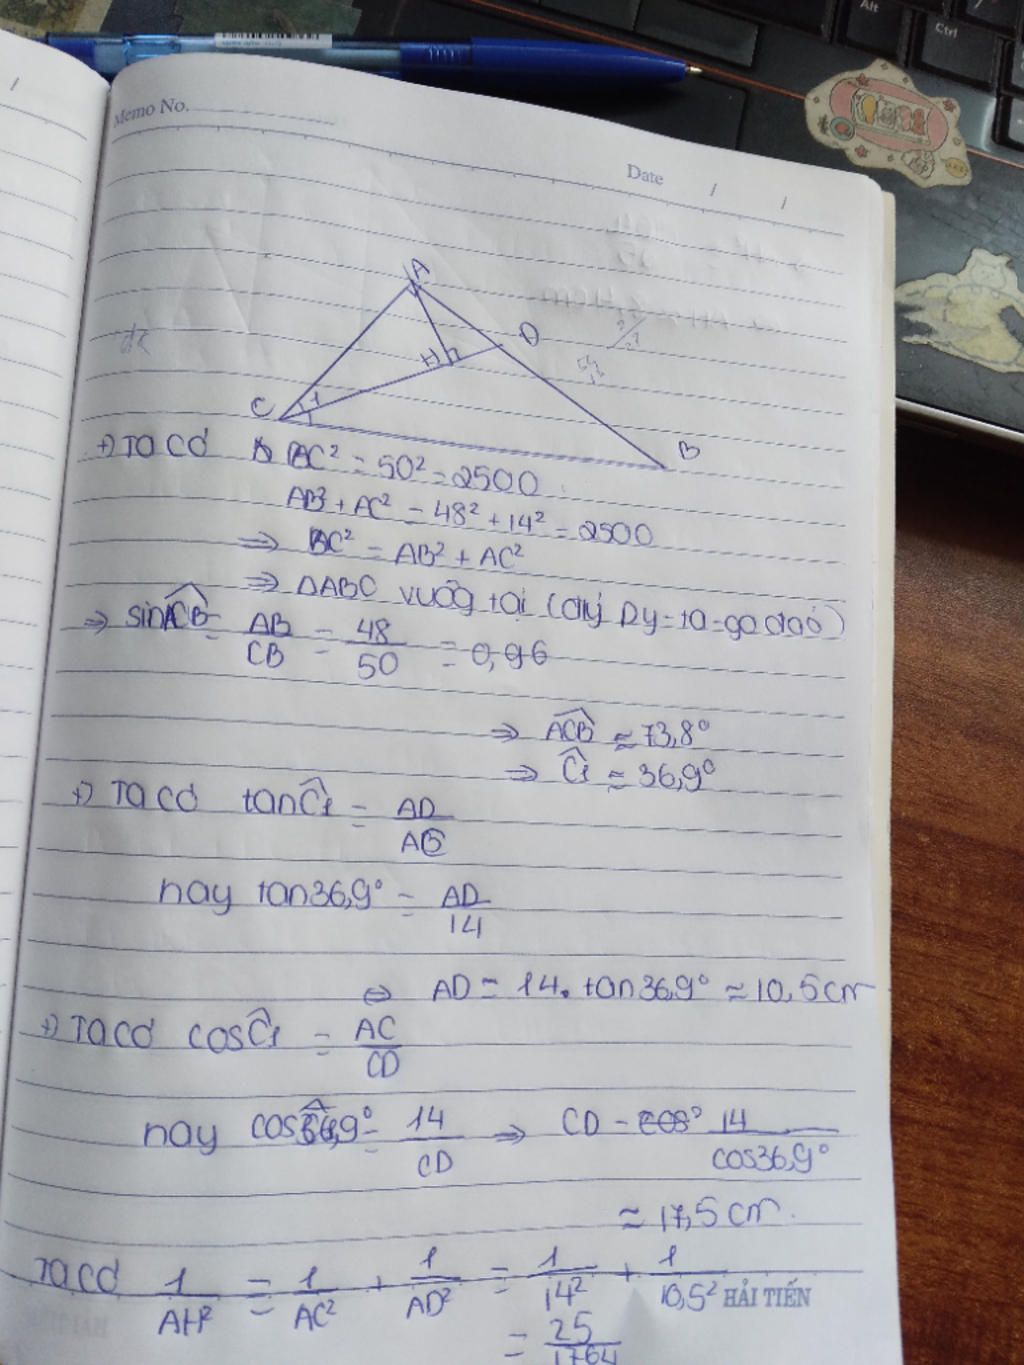 Alt
Ctrl
Memo No.
Date / /
A
H
D
C 1
B
+) Ta có BC² = 50² = 2500
AB² + AC² = 48² + 14² = 2500
⇒ BC² = AB² + AC²
⇒ ΔABC vuông tại (đlý Py-ta-go đảo)
⇒ sin ACB = AB/CB = 48/50 = 0,96
⇒ ACB ≈ 73,8°
⇒ Ĉ1 ≈ 36,9°
+) Ta có tan Ĉ1 = AD/AC
hay tan36,9° = AD/14
⇔ AD = 14. tan36,9° ≈ 10,5 cm
+) Ta có cos Ĉ1 = AC/CD
hay cos36,9° = 14/CD ⇒ CD = 14/cos36,9°
≈ 17,5 cm.
Ta có 1/AH² = 1/AC² + 1/AD² = 1/14² + 1/10,5²
HẢI TIẾN
= 25/1764